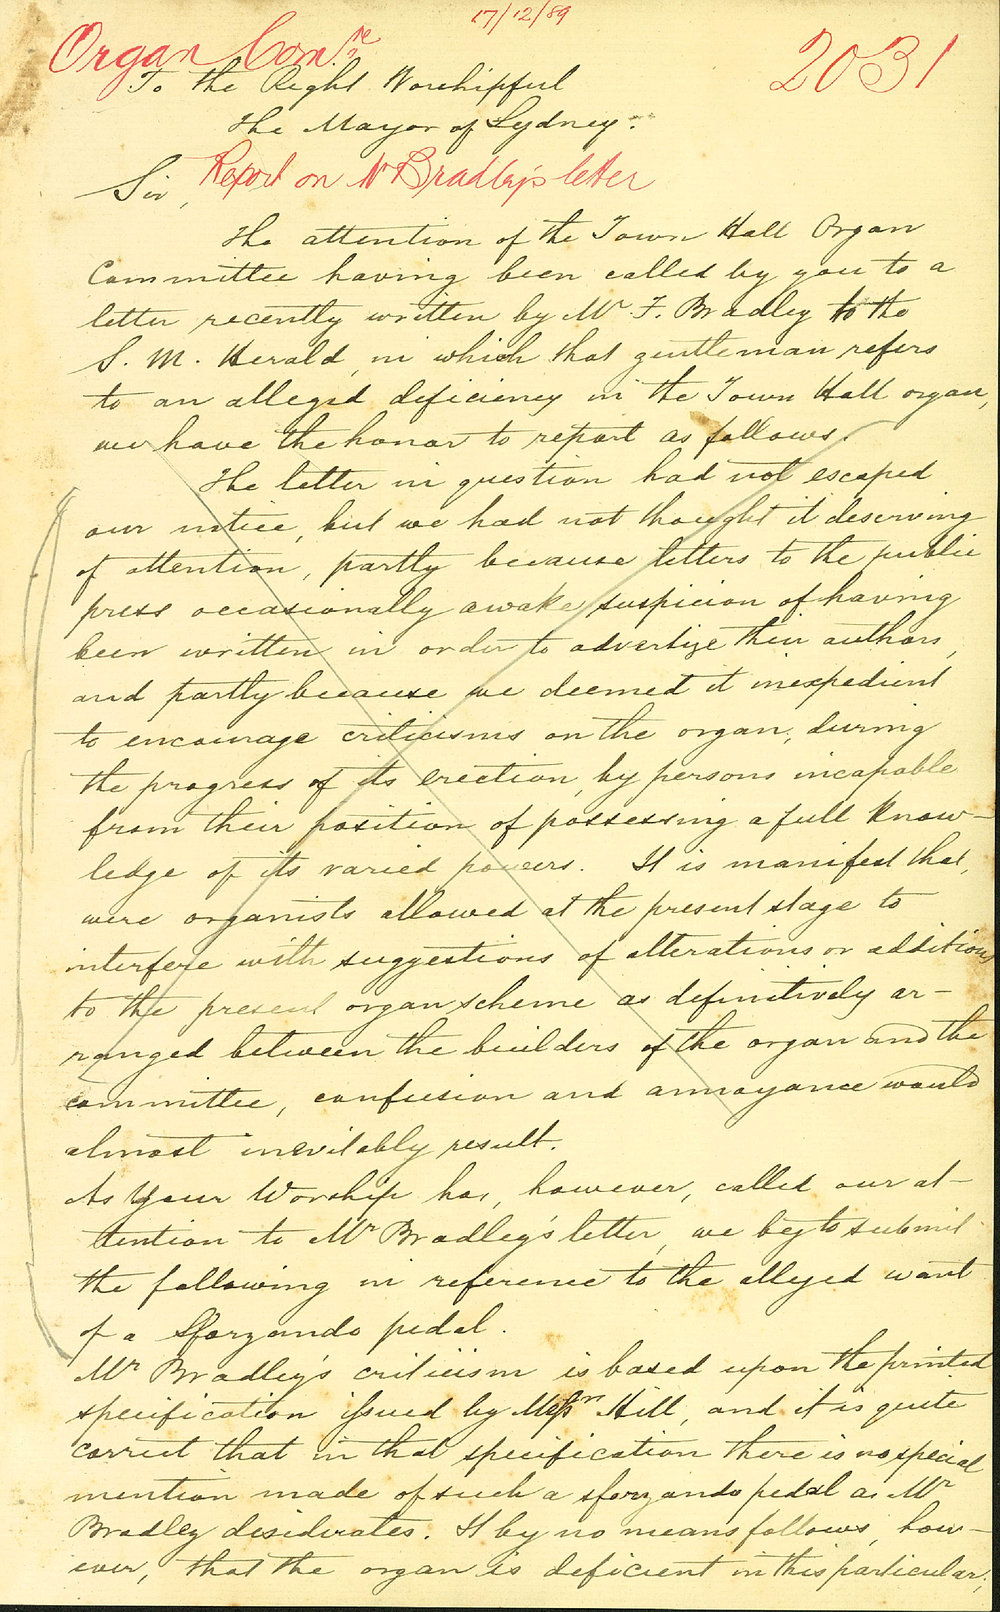 17/12/89
Organ Com.ee
2031
To the Right Worshipful
The Mayor of Sydney.
Sir,
Report on Mr Bradley's letter
The attention of the Town Hall Organ
Committee having been called by you to a
letter recently written by Mr F. Bradley to the
S. M. Herald, in which that gentleman refers
to an alleged deficiency in the Town Hall organ,
we have the honor to report as follows.
The letter in question had not escaped
our notice, but we had not thought it deserving
of attention, partly because letters to the public
press occasionally awake suspicion of having
been written in order to advertize their authors,
and partly because we deemed it inexpedient
to encourage criticisms on the organ, during
the progress of its erection, by persons incapable
from their position of possessing a full know-
ledge of its varied powers. It is manifest that,
were organists allowed at the present stage to
interfere with suggestions of alterations or additions
to the present organ scheme as definitively ar-
ranged between the builders of the organ and the
committee, confusion and annoyance would
almost inevitably result.
As Your Worship has, however, called our at-
tention to Mr Bradley's letter, we beg to submit
the following in reference to the alleged want
of a Sforzando pedal.
Mr Bradley's criticism is based upon the printed
specification issued by Messrs Hill, and it is quite
correct that in that specification there is no special
mention made of such a sforzando pedal as Mr
Bradley desiderates. It by no means follows, how-
ever, that the organ is deficient in this particular;